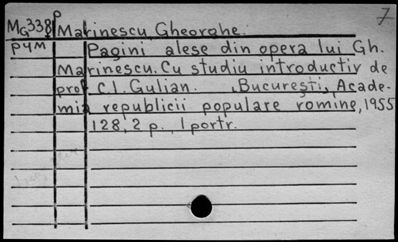 7
MG338p Marinescu, Gheorghe.
РЧМ Pagini alese din opera lui Gh.
Marinescu. Cu studiu introductiv de
prof. C.I. Gulian. , Bucureşti, Acade-
mia republicii populare romîne, 1955
128, 2 p., 1 portr.